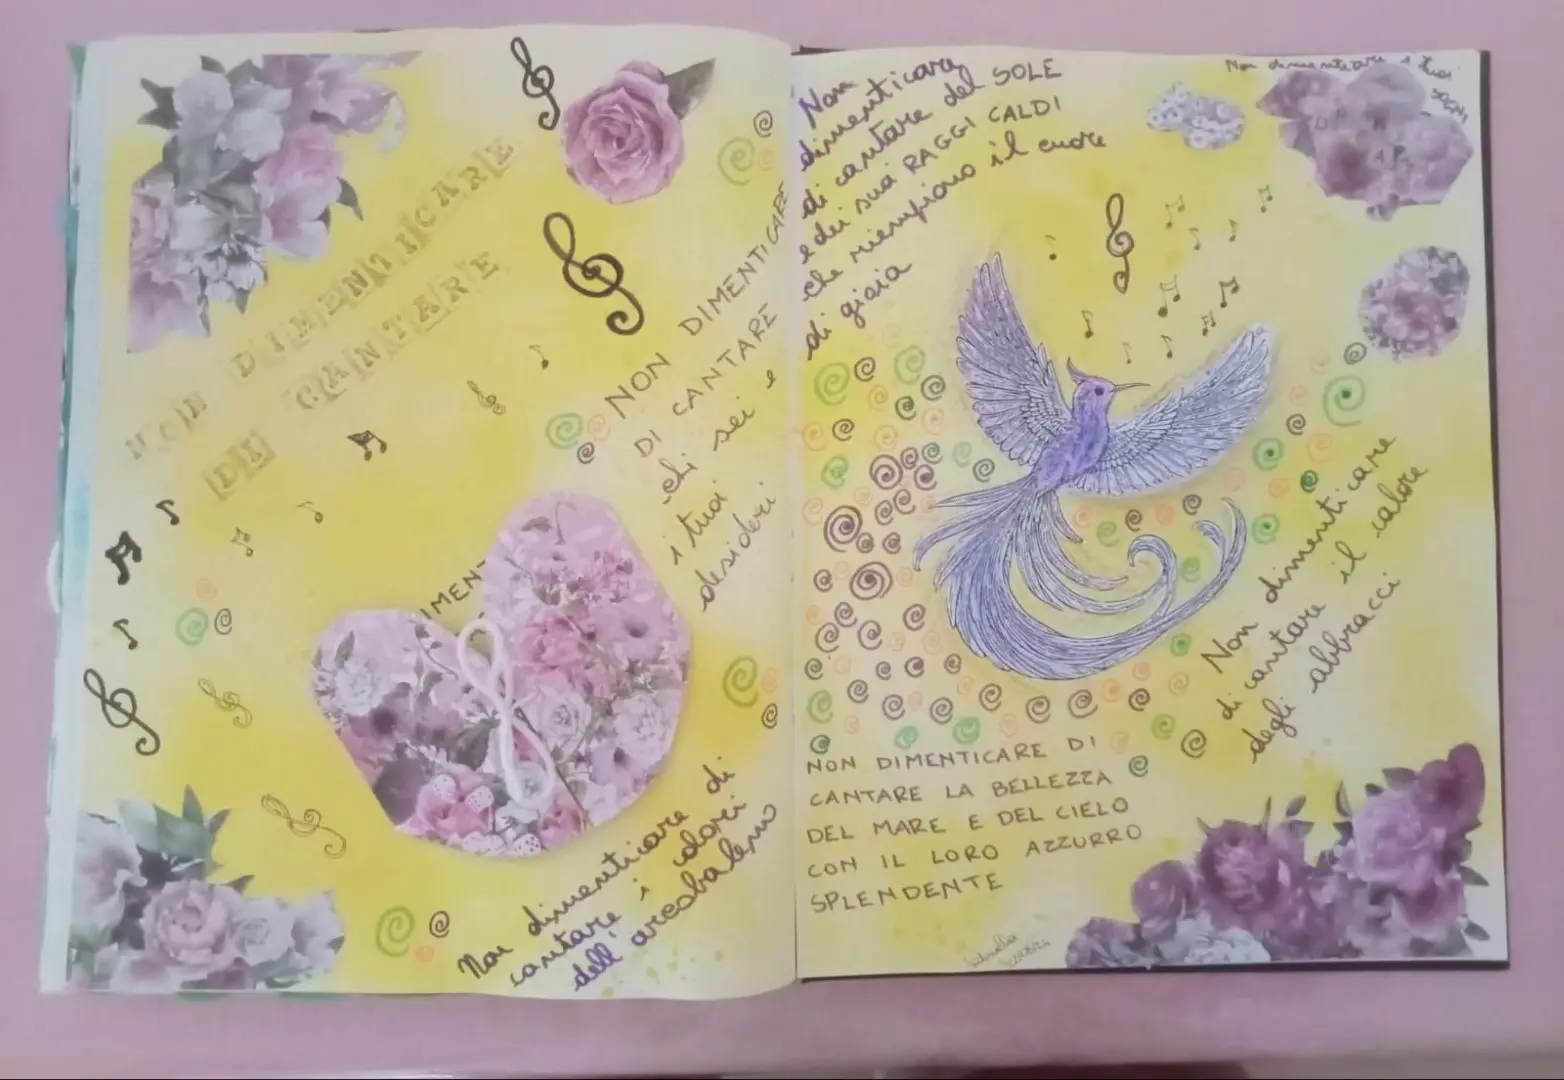 NON DIMENTICARE
DI CANTARE
NON DIMENTICARE
DI CANTARE
chi sei e
i tuoi
desideri
IMENT
Non dimenticare di
cantare i colori
dell' arcobaleno
Non
dimenticare
di cantare del SOLE
e dei sua RAGGI CALDI
che riempiono il cuore
di gioia
Non dimenticare i tuoi
SOGNI
Non dimenticare
di cantare il calore
degli abbracci
NON DIMENTICARE DI
CANTARE LA BELLEZZA
DEL MARE E DEL CIELO
CON IL LORO AZZURRO
SPLENDENTE